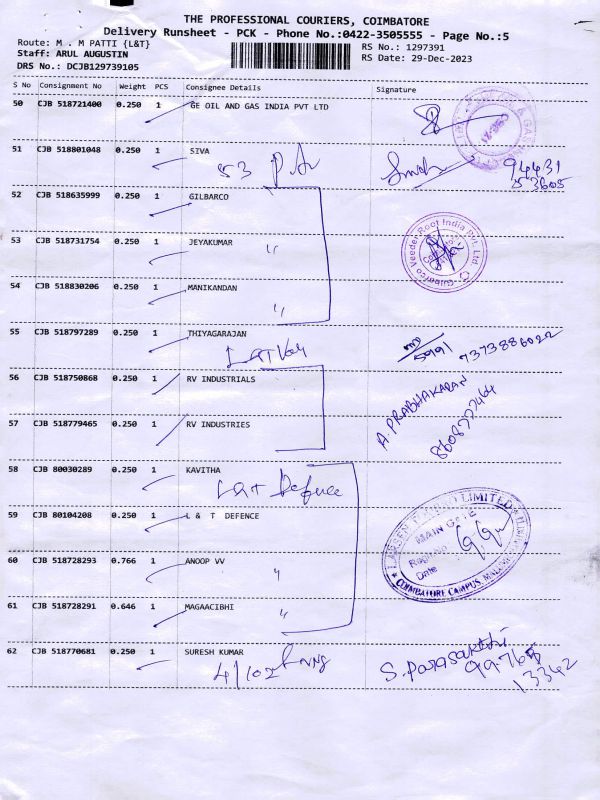 THE PROFESSIONAL COURIERS, COIMBATORE
Delivery Runsheet - PCK - Phone No.:0422-3505555 - Page No.:5
Route: M . M PATTI {L&T}
Staff: ARUL AUGUSTIN
DRS No.: DCJB129739105
RS No.: 1297391
RS Date: 29-Dec-2023
S No Consignment No Weight PCS Consignee Details Signature
50 CJB 518721400 0.250 1 GE OIL AND GAS INDIA PVT LTD
51 CJB 518801048 0.250 1 SIVA
53
94431
53605
52 CJB 518635999 0.250 1 GILBARCO
Gilbarco Veeder Root India Pvt. Ltd
53 CJB 518731754 0.250 1 JEYAKUMAR
54 CJB 518830206 0.250 1 MANIKANDAN
55 CJB 518797289 0.250 1 THIYAGARAJAN
5991
7373886022
56 CJB 518750868 0.250 1 RV INDUSTRIALS
A PRABHAKARAN
8608772464
57 CJB 518779465 0.250 1 RV INDUSTRIES
58 CJB 80030289 0.250 1 KAVITHA
L&T Defence
59 CJB 80104208 0.250 1 L & T DEFENCE
LIMITED
MAIN GATE
Date
COIMBATORE CAMPUS,
60 CJB 518728293 0.766 1 ANOOP VV
61 CJB 518728291 0.646 1 MAGAACIBHI
62 CJB 518770681 0.250 1 SURESH KUMAR
4/102
S. Parasakthi
99768
13342